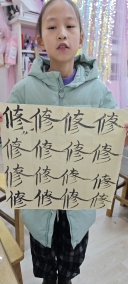 修 修 修 修
修 修 修 修
修 修 修 修
修 修 修 修